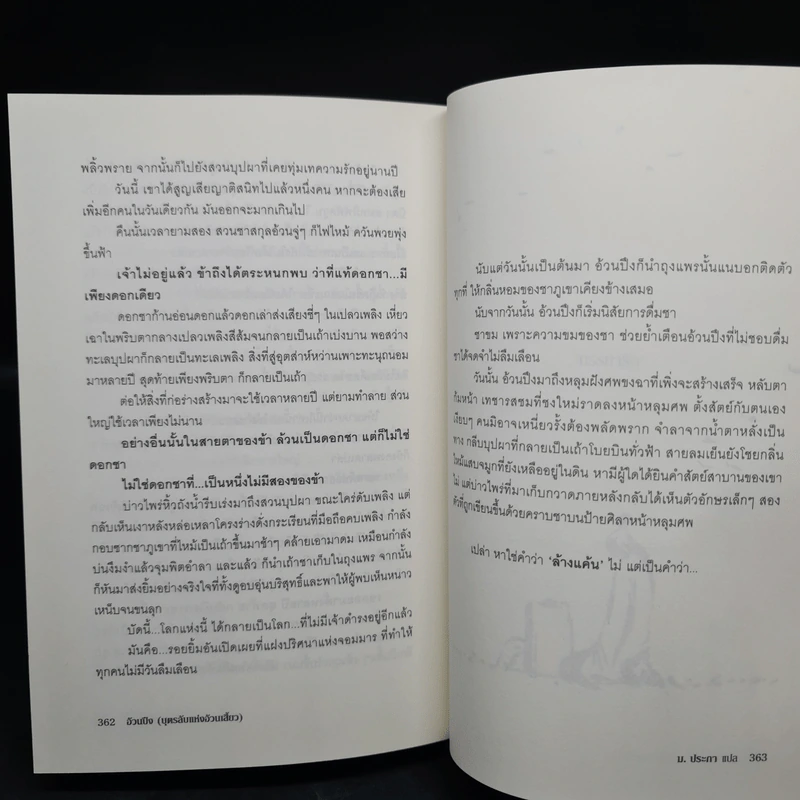 พลิ้วพราย จากนั้นก็ไปยังสวนบุปผาที่เคยทุ่มเทความรักอยู่นานปี
วันนี้ เขาได้สูญเสียญาติสนิทไปแล้วหนึ่งคน หากจะต้องเสีย
เพิ่มอีกคนในวันเดียวกัน มันออกจะมากเกินไป
คืนนั้นเวลายามสอง สวนชาสกุลอ้วนจู่ๆ ก็ไฟไหม้ ควันพวยพุ่ง
ขึ้นฟ้า
เจ้าไม่อยู่แล้ว ข้าถึงได้ตระหนกพบ ว่าที่แท้ดอกชา...มี
เพียงดอกเดียว
ดอกชาก้านอ่อนดอกแล้วดอกเล่าส่งเสียงซี่ๆ ในเปลวเพลิง เหี่ยว
เฉาในพริบตากลางเปลวเพลิงสีส้มจนกลายเป็นเถ้าเบ่งบาน พอสว่าง
ทะเลบุปผาก็กลายเป็นทะเลเพลิง สิ่งที่สู้อุตส่าห์หว่านเพาะทะนุถนอม
มาหลายปี สุดท้ายเพียงพริบตา ก็กลายเป็นเถ้า
ต่อให้สิ่งที่ก่อร่างสร้างมาจะใช้เวลาหลายปี แต่ยามทำลาย ส่วน
ใหญ่ใช้เวลาเพียงไม่นาน
อย่างอื่นนั้นในสายตาของข้า ล้วนเป็นดอกชา แต่ก็ไม่ใช่
ดอกชา
ไม่ใช่ดอกชาที่...เป็นหนึ่งไม่มีสองของข้า
บ่าวไพร่หิ้วถังน้ำรีบเร่งมาถึงสวนบุปผา ขณะใคร่ดับเพลิง แต่
กลับเห็นเงาหลังหล่อเหลาโครงร่างดั่งกระเรียนที่มือถือคบเพลิง กำลัง
กอบซากชาภูเขาที่ไหม้เป็นเถ้าขึ้นมาช้าๆ คล้ายเอามาดม เหมือนกำลัง
บ่นงึมงำแล้วจุมพิตอำลา และแล้ว ก็นำเถ้าชาเก็บในถุงแพร จากนั้น
ก็หันมาส่งยิ้มอย่างจริงใจที่ทั้งดูอบอุ่นบริสุทธิ์และพาให้ผู้พบเห็นหนาว
เหน็บจนขนลุก
บัดนี้...โลกแห่งนี้ ได้กลายเป็นโลก...ที่ไม่มีเจ้าดำรงอยู่อีกแล้ว
มันคือ...รอยยิ้มอันเปิดเผยที่แฝงปริศนาแห่งจอมมาร ที่ทำให้
ทุกคนไม่มีวันลืมเลือน
362 อ้วนปิง (บุตรลับแห่งอ้วนเสี้ยว)
นับแต่วันนั้นเป็นต้นมา อ้วนปิงก็นำถุงแพรนั้นแนบอกติดตัว
ทุกที่ ให้กลิ่นหอมของชาภูเขาเคียงข้างเสมอ
นับจากวันนั้น อ้วนปิงก็เริ่มนิสัยการดื่มชา
ชาขม เพราะความขมของชา ช่วยย้ำเตือนอ้วนปิงที่ไม่ชอบดื่ม
ชาได้จดจำไม่ลืมเลือน
วันนั้น อ้วนปิงมาถึงหลุมฝังศพของฉาที่เพิ่งจะสร้างเสร็จ หลับตา
ก้มหน้า เทชารสขมที่ชงใหม่ราดลงหน้าหลุมศพ ตั้งสัตย์กับตนเอง
เงียบๆ คนมิอาจเหนี่ยวรั้งต้องพลัดพราก จำลาจากน้ำตาหลั่งเป็น
ทาง กลีบบุปผาที่กลายเป็นเถ้าโบยบินทั่วฟ้า สายลมเย็นยังโชยกลิ่น
ไหม้แสบจมูกที่ยังเหลืออยู่ในดิน หามีผู้ใดได้ยินคำสัตย์สาบานของเขา
ไม่ แต่บ่าวไพร่ที่มาเก็บกวาดภายหลังกลับได้เห็นตัวอักษรเล็กๆ สอง
ตัวที่ถูกเขียนขึ้นด้วยคราบชาบนป้ายศิลาหน้าหลุมศพ
เปล่า หาใช่คำว่า ‘ล้างแค้น’ ไม่ แต่เป็นคำว่า...
ม. ประภา แปล 363